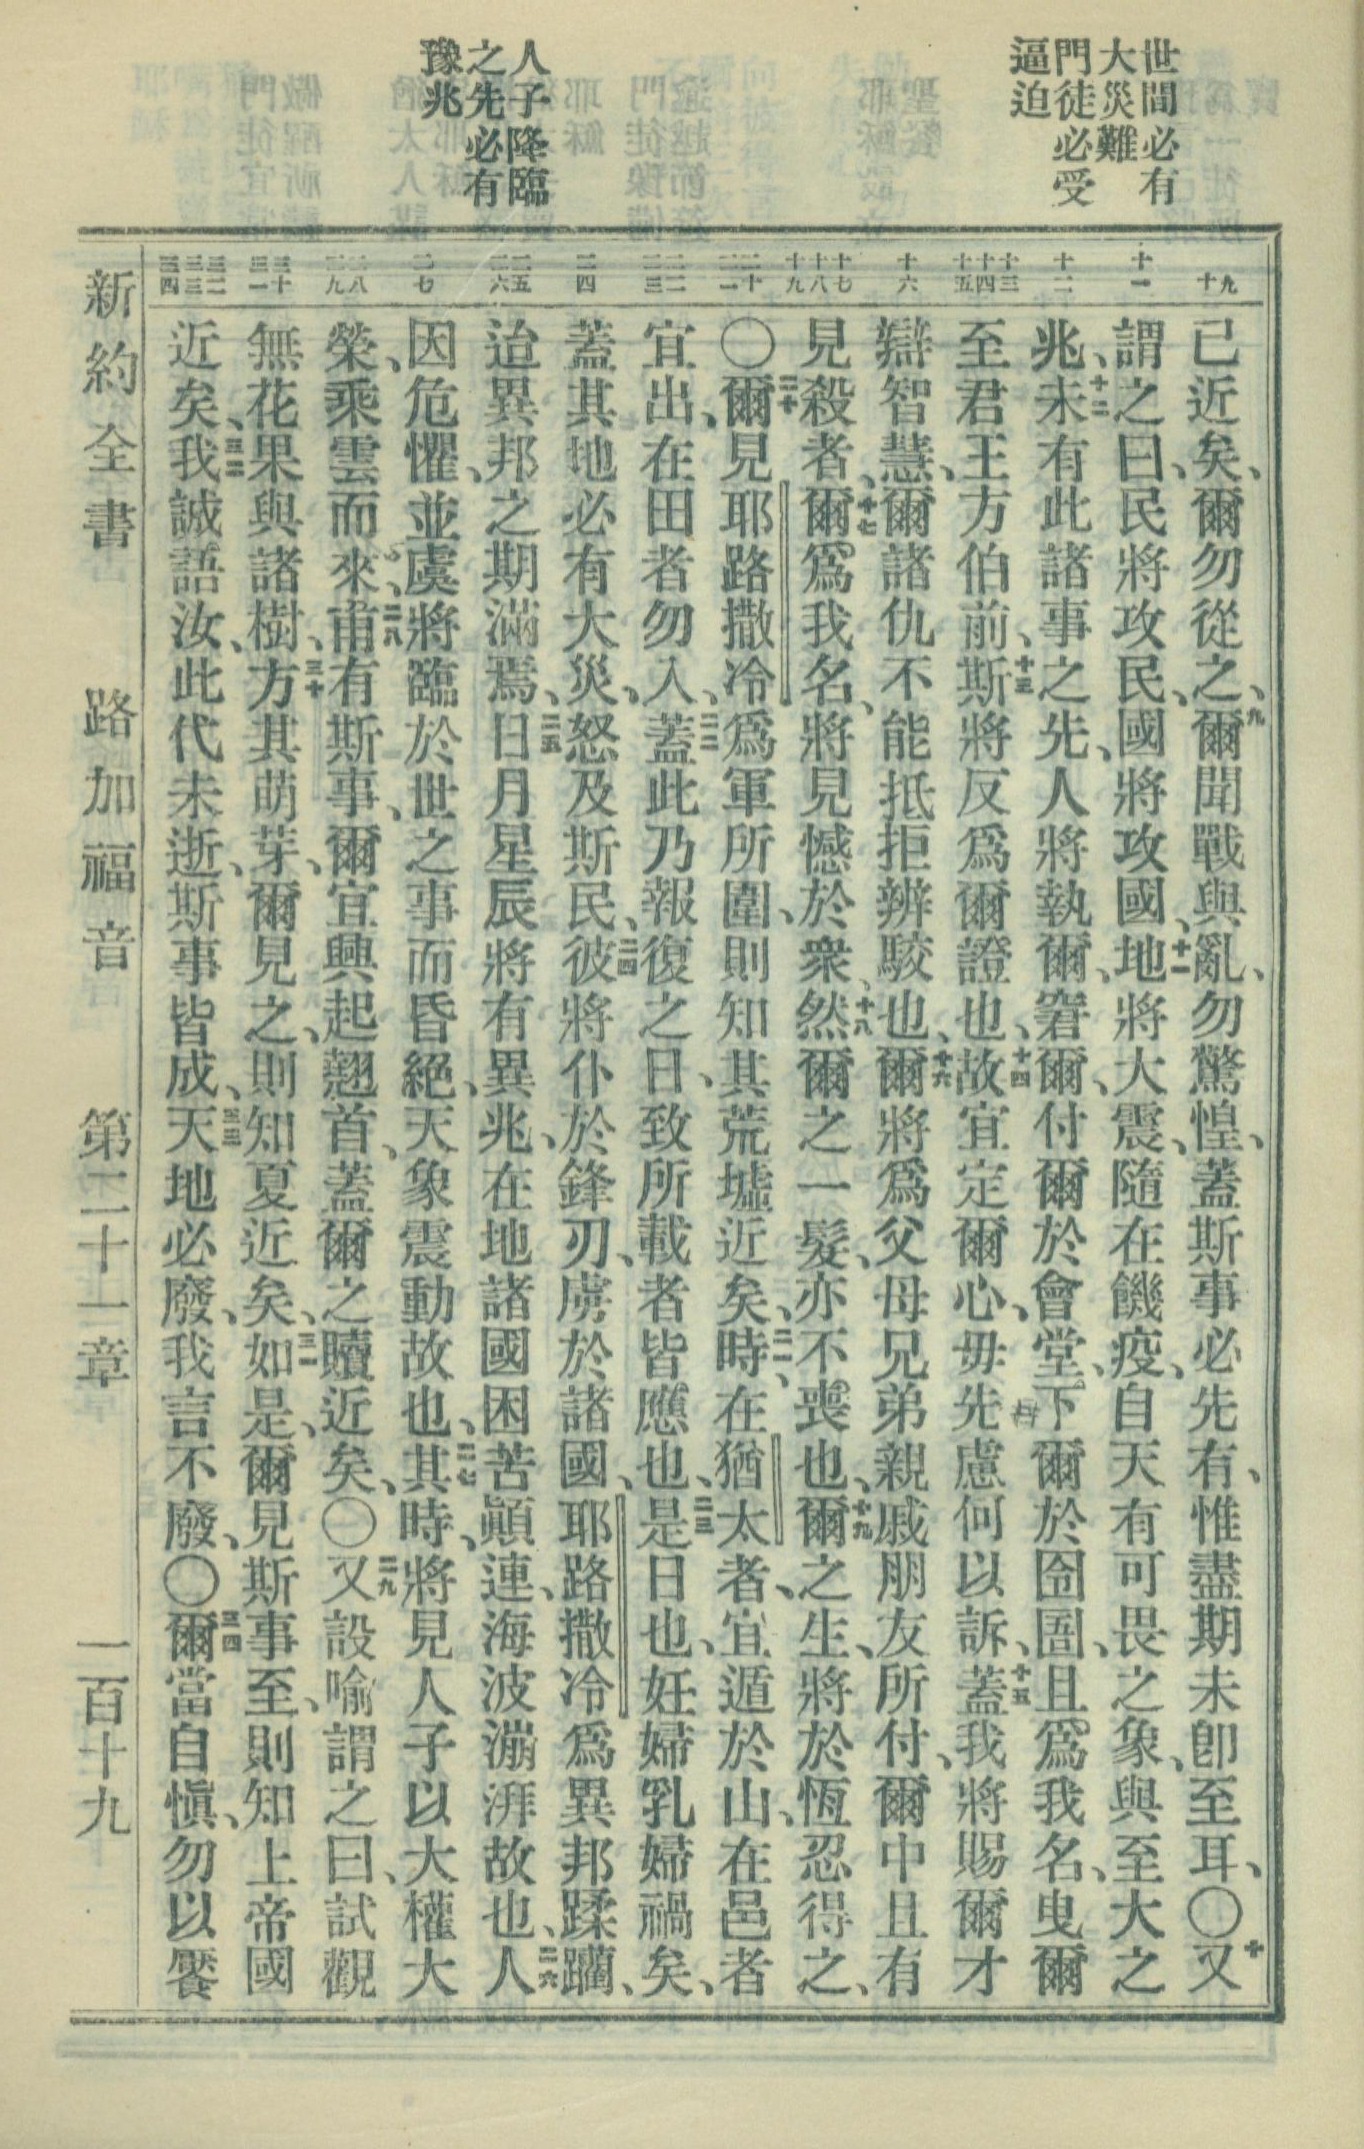 世間必有
大災難
門徒必受
逼迫
人子降臨
之先必有
豫兆
已近矣、爾勿從之、九爾聞戰與亂、勿驚惶、蓋斯事必先有、惟盡期未卽至耳、〇十又
謂之曰、民將攻民、國將攻國、十一地將大震、隨在饑疫、自天有可畏之象、與至大之
兆、十二未有此諸事之先、人將執爾、窘爾、付爾於會堂、下爾於囹圄、且爲我名、曳爾
至君王方伯前、十三斯將反爲爾證也、十四故宜定爾心、毋先慮何以訴、十五蓋我將賜爾才
辯智慧、爾諸仇不能抵拒辨駁也、十六爾將爲父母兄弟親戚朋友所付、爾中且有
見殺者、十七爾爲我名、將見憾於衆、十八然爾之一髮、亦不喪也、十九爾之生、將於恆忍得之、
〇二十爾見耶路撒冷爲軍所圍、則知其荒墟近矣、二一時、在猶太者、宜遁於山、在邑者
宜出、在田者勿入、二二蓋此乃報復之日、致所載者皆應也、二三是日也、妊婦乳婦禍矣、
蓋其地必有大災、怒及斯民、二四彼將仆於鋒刃、虜於諸國、耶路撒冷爲異邦蹂躪、
迨異邦之期滿焉、二五日月星辰將有異兆、在地諸國困苦顚連、海波漰湃故也、二六人
因危懼、並虞將臨於世之事而昏絕、天象震動故也、二七其時、將見人子以大權大
榮、乘雲而來、二八甫有斯事、爾宜興起翹首、蓋爾之贖近矣、〇二九又設喻謂之曰、試觀
無花果與諸樹、三十方其萌芽、爾見之、則知夏近矣、三一如是、爾見斯事至、則知上帝國
近矣、三二我誠語汝、此代未逝、斯事皆成、三三天地必廢、我言不廢、〇三四爾當自愼、勿以饜
新約全書 路加福音 第二十一章 一百十九